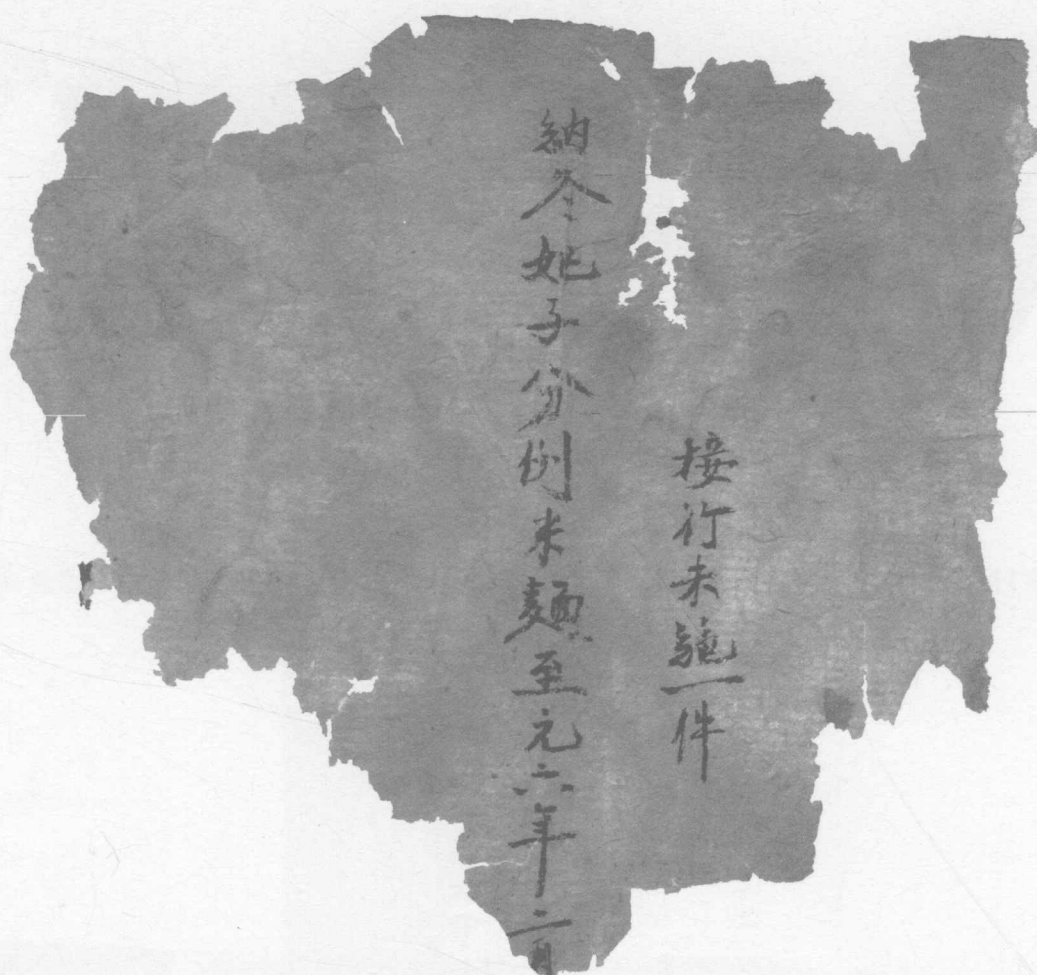 接行未絶一件
納冬妃子分例米麵至元六年二月